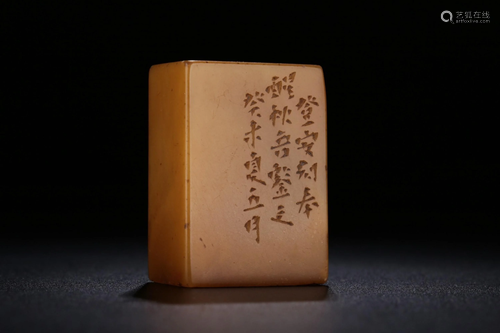 登安刻奉
醒秋吾鉴之
癸未夏五月
艺狐在线
artfoxlive.com